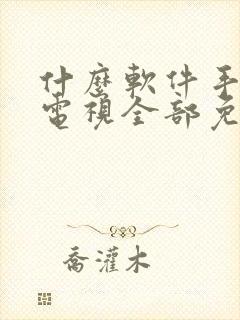 什麼軟件手
電視全部免
喬灌木